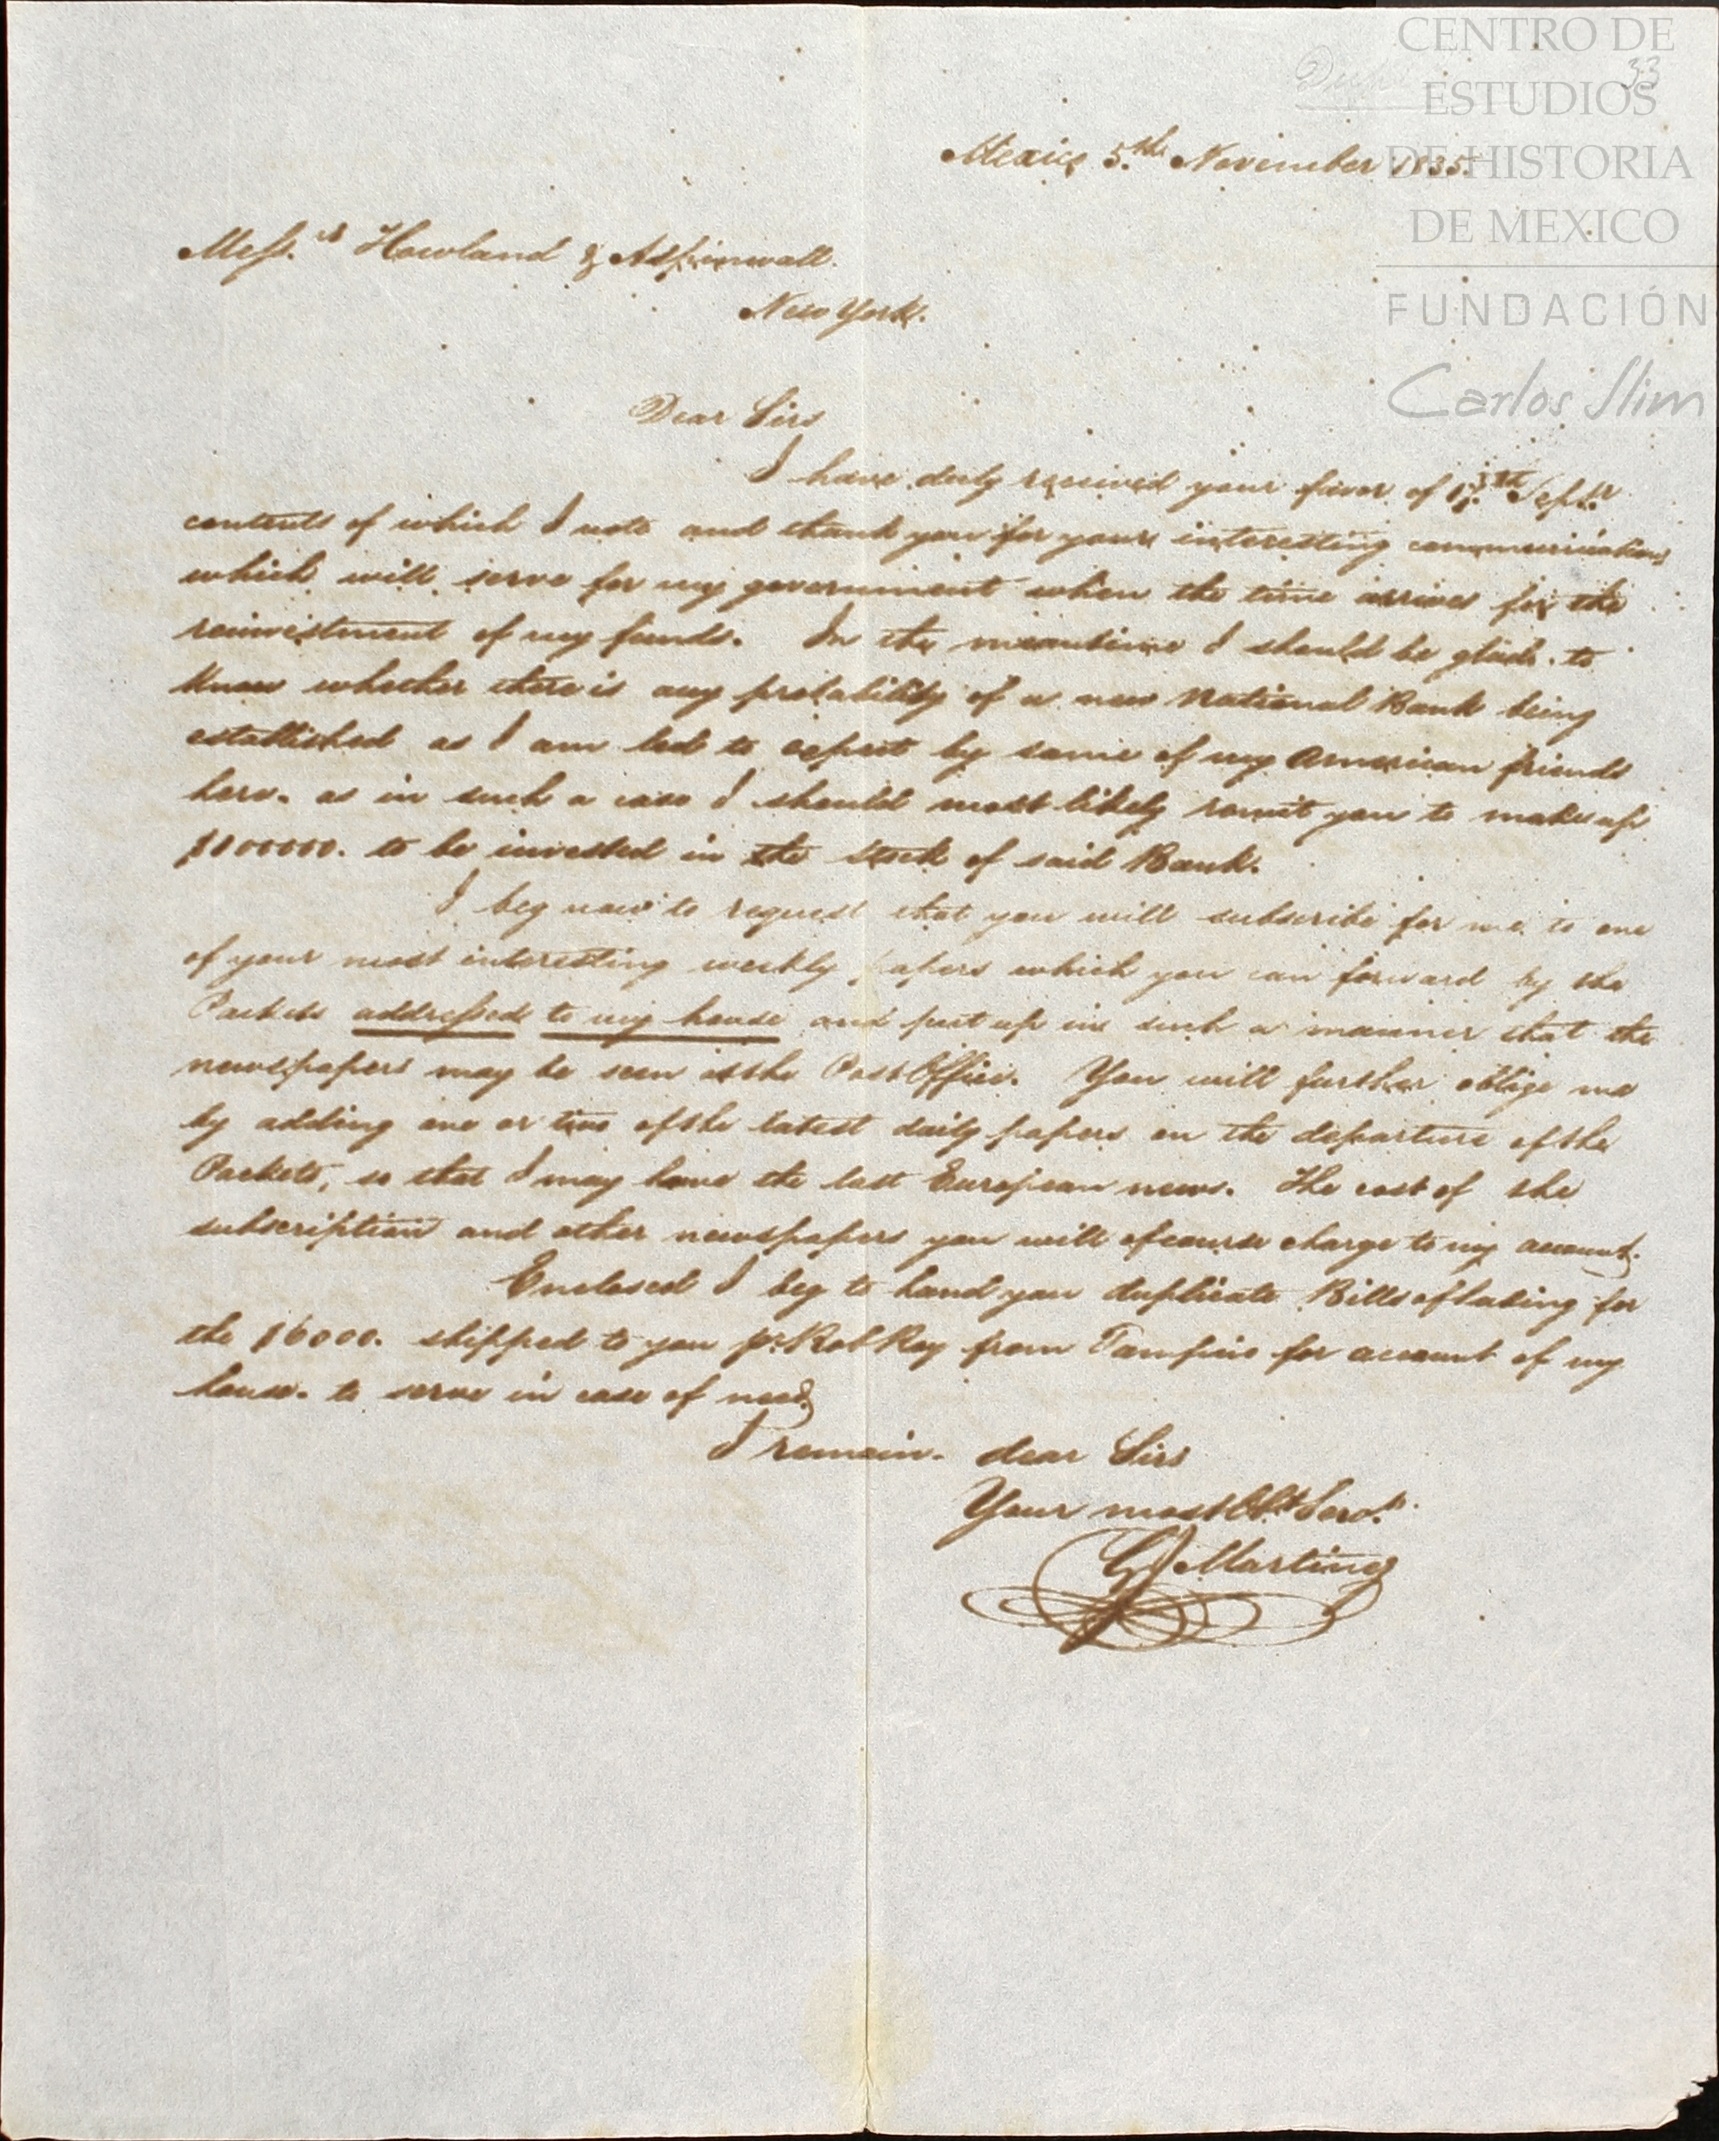 CENTRO DE
ESTUDIOS
DE HISTORIA
DE MEXICO
FUNDACIÓN
Carlos Slim
33
Mexico 5.th November 1835.
Mess.rs Howland & Aspinwall.
New York.
Dear Sirs
I have duly received your favor of Sept.r
contents of which I note and thank you for your interesting communications
which will serve for my government when the time arrives for the
reinvestment of my funds. In the meantime I should be glad to
know whether there is any probability of a new National Bank being
established as I am led to expect by some of my American friends
here. as in such a case I should most likely remit you to make up
$100000. to be invested in the stock of said Bank.
I beg now to request that you will subscribe for me to one
of your most interesting weekly papers which you can forward by the
Packets addressed to my house and put up in such a manner that the
newspapers may be seen at the Post Office. You will further oblige me
by adding one or two of the latest daily papers on the departure of the
Packets, so that I may have the last European news. The cost of the
subscription and other newspapers you will of course charge to my account.
Enclosed I beg to hand you duplicate Bills of lading for
the $6000. shipped to you pr. Rob Roy from Tampico for account of my
house. to serve in case of need.
I remain. dear Sirs
Your most Obt. Servt.
G Martinez